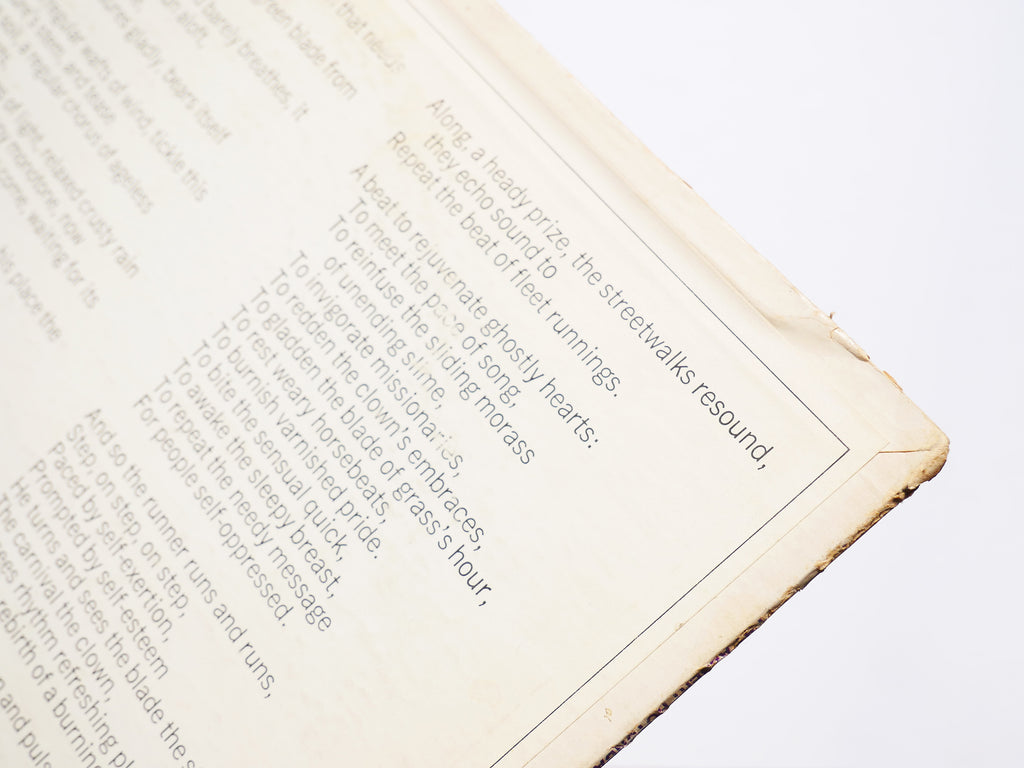 that needs
green blade from
barely breathes, it
aloft,
gladly, bears itself
wafts of wind, tickle this
stem, and tease
soil, a regular chorus of ageless
of light, relaxed crusty rain
monotone, now
come, waiting for its
his place the
Along, a heady prize, the streetwalks resound,
they echo sound to
Repeat the beat of fleet runnings.
A beat to rejuvenate ghostly hearts:
To meet the pace of song,
To reinfuse the sliding morass
of unending slime,
To invigorate missionaries,
To redden the clown's embraces,
To gladden the blade of grass's hour,
To rest weary horsebeats,
To burnish varnished pride.
To bite the sensual quick,
To awake the sleepy breast,
To repeat the needy message
For people self-oppressed.
And so the runner runs and runs,
Step, on step, on step,
Paced by self-exertion,
Prompted by self-esteem
He turns and sees the blade the
The carnival the clown,
rhythm refreshing
rebirth of a burning
and